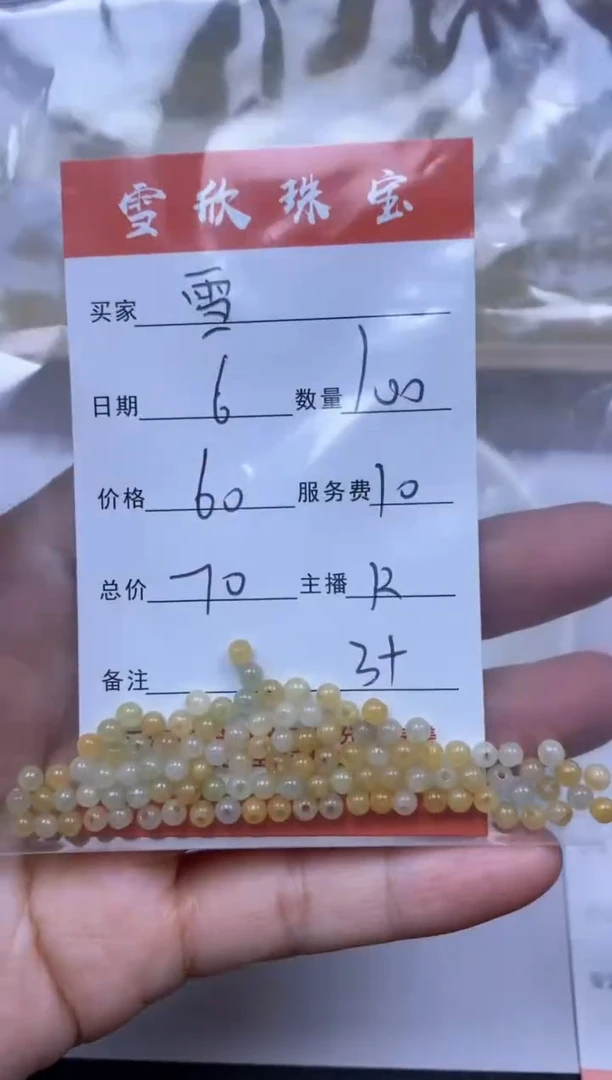 雪欣珠宝
买家 雪
日期 6 数量 100
价格 60 服务费 10
总价 70 主播 R
备注 3+